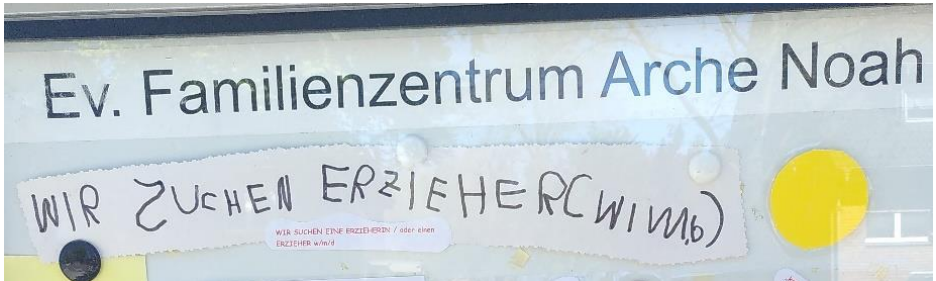 Ev. Familienzentrum Arche Noah
WIR ZUCHEN ERZIEHER(WIM,6)
WIR SUCHEN EINE ERZIEHERIN / oder einen
ERZIEHER w/m/d